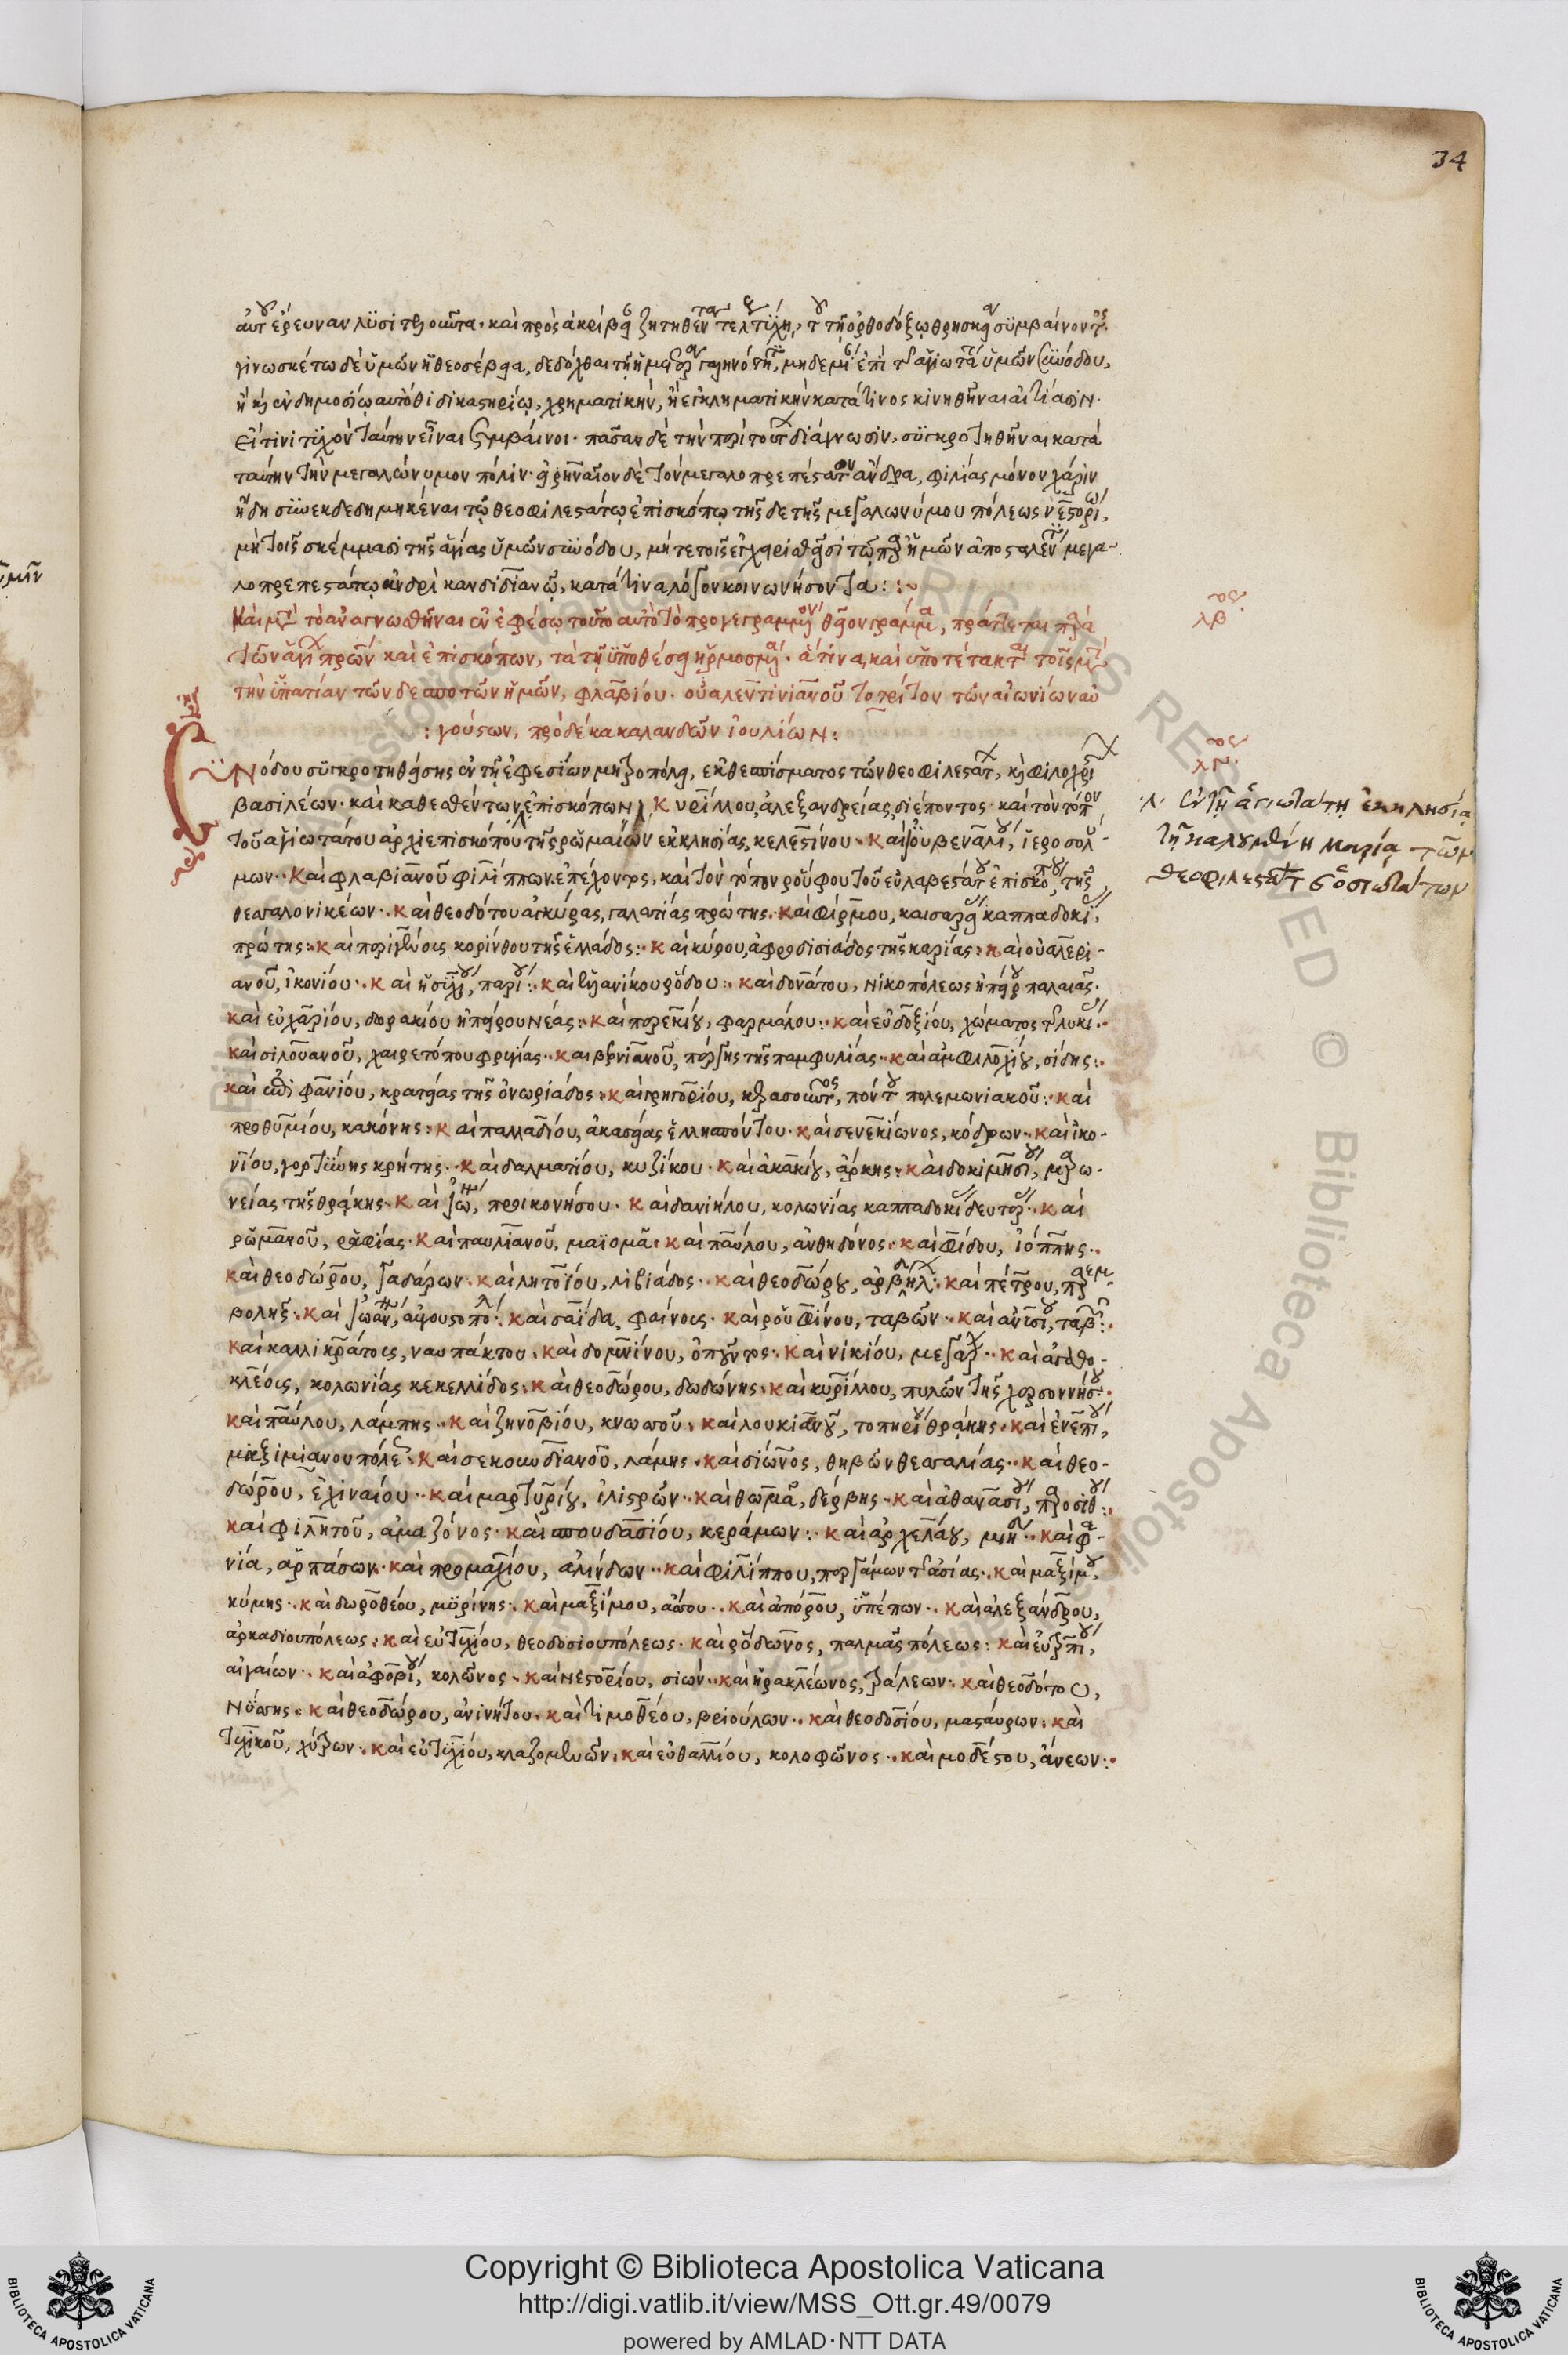 34
γινωσκέτω δὲ ὑμῶν ἡ θεοσέβεια, δεδόχθαι τῇ ἡμετέρα γαληνότητι, μηδεμίαν ἐπὶ τῆς ἁγιωτάτης ὑμῶν συνόδου,
ἢ καὶ ἐν δημοσίῳ αὐτόθι δικαστηρίῳ, χρηματικὴν, ἢ ἐγκληματικὴν κατά τινος κινηθῆναι αἰτίασιν.
εἴ τινι τυχὸν ταύτην εἶναι συμβαίνοι. πᾶσαν δὲ τὴν περὶ τούτων διάγνωσιν, συγκροτηθῆναι κατὰ
ταύτην τὴν μεγαλώνυμον πόλιν. εἰρηναῖον δὲ τὸν μεγαλοπρεπέστατον ἄνδρα, φιλίας μόνον χάριν
ἤδη συνεκδεδημηκέναι τῷ θεοφιλεστάτῳ ἐπισκόπῳ τῆσδε τῆς μεγαλωνύμου πόλεως νεστορίῳ,
μὴ τοῖς σκέμμασι τῆς ἁγίας ὑμῶν συνόδου, μή τε τοῖς ἐγχειρισθεῖσι τῷ παρ' ἡμῶν ἀποσταλέντι μεγα-
λοπρεπεστάτῳ ἀνδρὶ κανδιδιανῷ, κατά τινα λόγον κοινωνήσοντα:
καὶ μετὰ τὸ ἀναγνωσθῆναι ἐν ἐφέσῳ τοῦτο αὐτὸ τὸ προγεγραμμένον θεῖον γράμμα, πράττεται παρὰ
τῶν ἁγίων πρων καὶ ἐπισκόπων, τὰ τῇ ὑποθέσει ἡρμοσμένα. ἅτινα, καὶ ὑποτέτακται τοῖς μετὰ
τὴν ὑπατίαν τῶν δεσποτῶν ἡμῶν, φλαβίου. οὐαλεντινιανοῦ τὸ τρίτον τῶν αἰωνίων αὐ
:γούστων, πρὸ δέκα καλανδῶν ἰουλίων:
Συνόδου συγκροτηθείσης ἐν τῇ ἐφεσίων μητροπόλει, ἐκ θεσπίσματος τῶν θεοφιλεστάτων, καὶ φιλοχρίστων
βασιλέων. καὶ καθεσθέντων, ἐπισκόπων, κυρίλλου, ἀλεξανδρείας, διέποντος καὶ τὸν τόπον
τοῦ ἁγιωτάτου ἀρχιεπισκόπου τῆς ῥωμαίων ἐκκλησίας, κελεστίνου. καὶ ἰουβεναλίου, ἱεροσολύ-
μων. καὶ φλαβιανοῦ φιλίππων, ἐπέχοντος, καὶ τὸν τόπον ῥούφου τοῦ εὐλαβεστάτου ἐπισκόπου, τῆς
θεσσαλονικέων. καὶ θεοδότου ἀγκύρας, γαλατίας πρώτης. καὶ φίρμου, καισαρείας καππαδοκίας,
πρώτης: καὶ περιγένους κορίνθου τῆς ἑλλάδος: καὶ κύρου, ἀφροδισιάδος τῆς καρίας: καὶ οὐαλερι-
ανοῦ, ἰκονίου. καὶ ἡσυχίου, παρίου: καὶ ἑλλανίκου ῥόδου: καὶ δονάτου, νικοπόλεως ἠπείρου παλαιᾶς.
καὶ εὐχαρίου, δυρακίου ἠπείρου νέας: καὶ περεκίου, φαρμάλου: καὶ εὐδοξίου, χώματος τῆς λυκίας.
καὶ σιλουανοῦ, χαιρετόπου φρυγίας. καὶ βρινιανοῦ, πέργης τῆς παμφυλίας. καὶ ἀμφιλοχίου, σίδης:
καὶ ἐπιφανίου, κρατείας τῆς ὀνωριάδος: καὶ γρηγορίου, κερασοῦντος, πόντου πολεμωνιακοῦ: καὶ
προθυμίου, κακόνης: καὶ παλλαδίου, ἀμασείας ἑλλησπόντου. καὶ σενεκίωνος, κόδρων. καὶ ἰκο-
νίου, γορτύνης κρήτης. καὶ δαλματίου, κυζίκου. καὶ ἀκακίου, ἄρκης: καὶ δοκιμησίου, μαρω-
νείας τῆς θράκης. καὶ ἰω, προικονήσου. καὶ δανιήλου, κολωνίας καππαδοκίας δευτέρας. καὶ
ῥωμανοῦ, ῥαφίας. καὶ παυλιανοῦ, μαϊομᾶ. καὶ παύλου, ἀνθηδόνος. καὶ φίδου, ἰόππης.
καὶ θεοδώρου, γαδάρων. καὶ λητοΐου, λιβιάδος. καὶ θεοδώρου, ἀρβδήλων. καὶ πέτρου, παρεμ-
βολῆς: καὶ ἰωάννου, αὐγουστοπόλεως: καὶ σαΐδα, φαίνους. καὶ ῥουφίνου, ταβῶν. καὶ ἀνυσίου, ταβ
καὶ καλλικράτους, ναυπάκτου. καὶ δομνίνου, ὀποῦντος. καὶ νικίου, μεγάρων. καὶ ἀγαθο-
κλέους, κολωνίας κεκελλίδος: καὶ θεοδώρου, δωδώνης: καὶ κυρίλλου, πυλῶν τῆς χερσοννήσου:
καὶ παύλου, λάμπης. καὶ ζηνοβίου, κνωσσοῦ. καὶ λουκιανοῦ, τοπηρίου θράκης. καὶ ἐνεπίου,
μαξιμιανουπόλεως: καὶ σεκουνδιανοῦ, λάμης. καὶ σιώνος, θηβῶν θεσσαλίας. καὶ θεο-
δώρου, ἐχιναίου. καὶ μαρτυρίου, ἰλιστρῶν. καὶ θωμᾶ, δέρβης. καὶ ἀθανασίου, παροσίθου:
καὶ φιλητοῦ, ἀμαζόνος. καὶ σπουδασίου, κεράμων: καὶ ἀρχελάου, μινδ. καὶ φα-
νία, ἁρπάσων. καὶ προμαχίου, ἀλίνδων. καὶ φιλίππου, περγάμων τῆς ἀσίας. καὶ μαξίμου,
κύμης. καὶ δωροθέου, μυρίνης. καὶ μαξίμου, ἄσσου. καὶ εὐπόρου, ὑπέπων. καὶ ἀλεξάνδρου,
ἀρκαδιουπόλεως: καὶ εὐτυχίου, θεοδοσιουπόλεως. καὶ ῥόδωνος, παλμᾶς πόλεως: καὶ εὐτροπίου,
αἰγαίων. καὶ ἀφοβίου, κολῶνος. καὶ νεστορίου, σιών. καὶ ἡρακλέωνος, τράλεων. καὶ θεοδότου,
νύσσης. καὶ θεοδώρου, ἀνινήτου. καὶ τιμοθέου, βριούλων. καὶ θεοδοσίου, μασταύρων: καὶ
τυχικοῦ, χύτρων. καὶ εὐτυχίου, κλαζομενῶν. καὶ εὐθαλίου, κολοφῶνος. καὶ μοδέστου, ἄνεων:
λβ
ἐν τῇ ἁγιωτάτῃ ἐκκλησίᾳ
τῇ καλουμένῃ μαρίᾳ τῶν
θεοφιλεστάτ καὶ ὁσιωτάτων
Copyright © Biblioteca Apostolica Vaticana
http://digi.vatlib.it/view/MSS_Ott.gr.49/0079
powered by AMLAD·NTT DATA
BIBLIOTECA APOSTOLICA VATICANA
BIBLIOTECA APOSTOLICA VATICANA